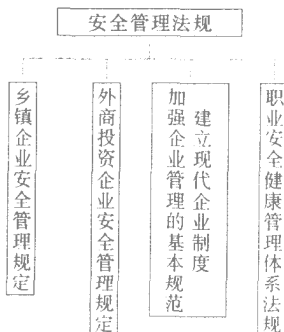 安全管理法规
乡镇企业安全管理规定
外商投资企业安全管理规定
建立现代企业制度
加强企业管理的基本规范
职业安全健康管理体系法规